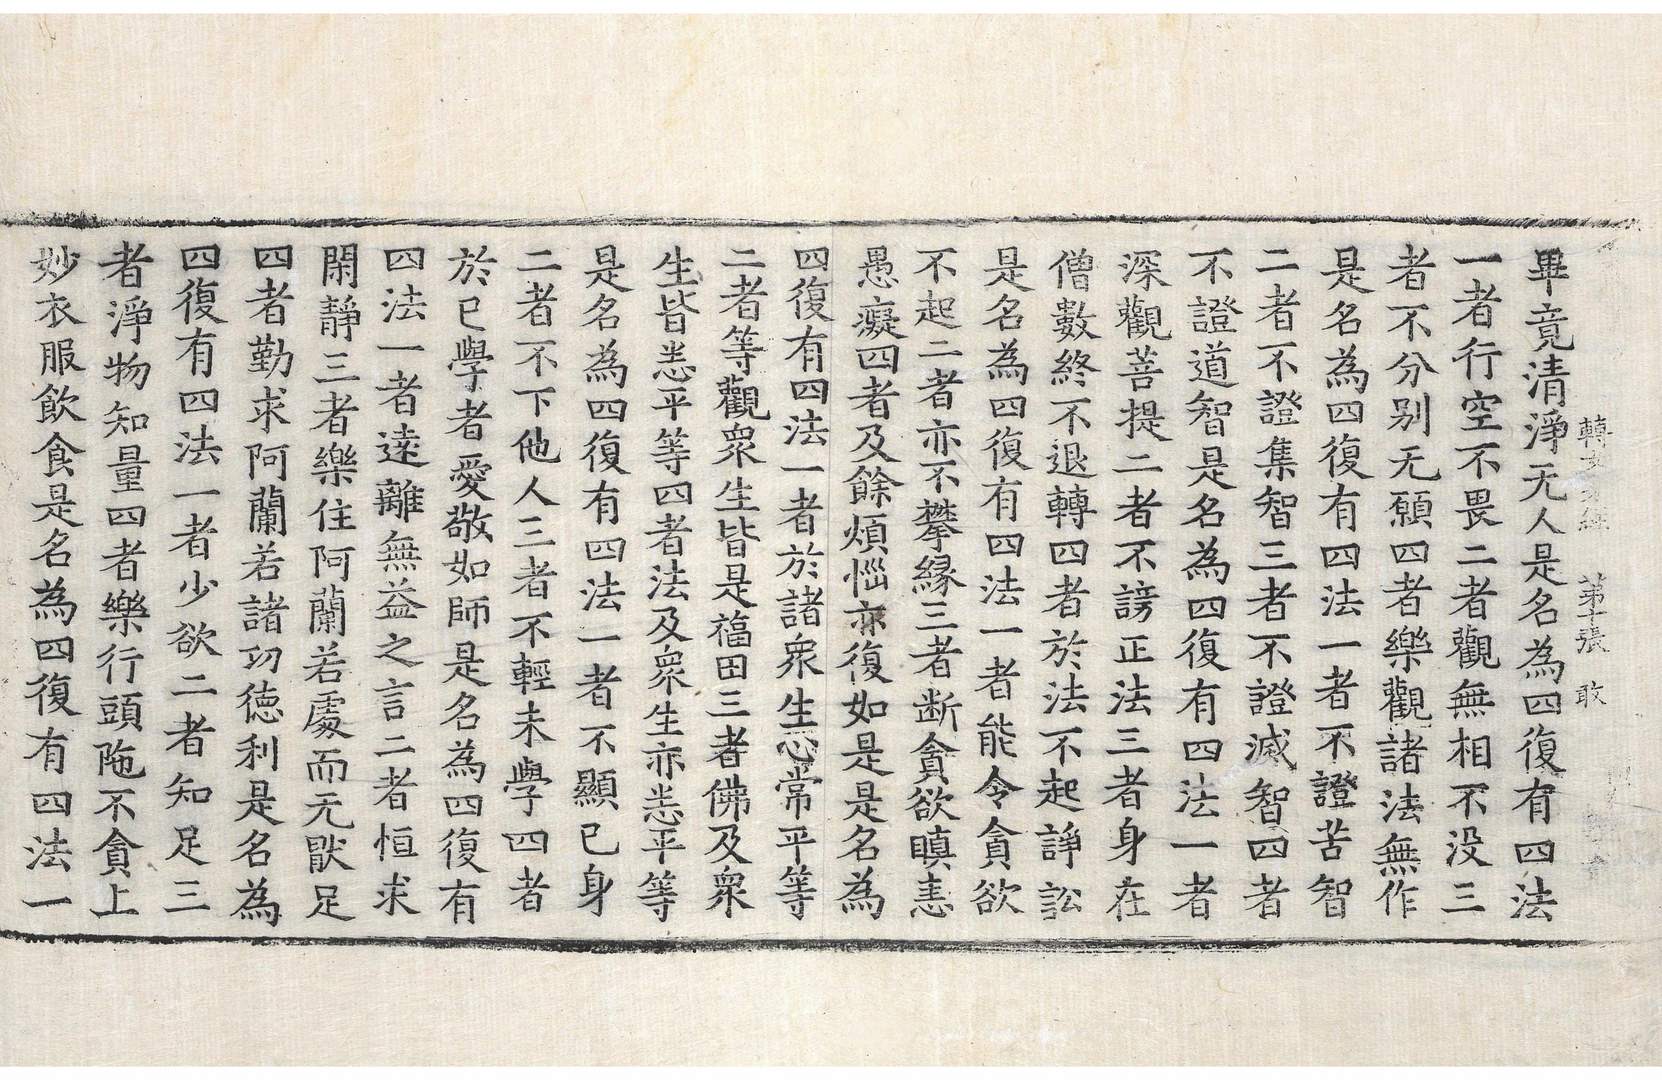 轉女身經 第十張 敢
畢竟清淨无人是名為四復有四法
一者行空不畏二者觀無相不没三
者不分别无願四者樂觀諸法無作
是名為四復有四法一者不證苦智
二者不證集智三者不證滅智四者
不證道智是名為四復有四法一者
深觀菩提二者不謗正法三者身在
僧數終不退轉四者於法不起諍訟
是名為四復有四法一者能令貪欲
不起二者亦不攀縁三者断貪欲瞋恚
愚癡四者及餘煩惱亦復如是是名為
四復有四法一者於諸衆生恐常平等
二者等觀衆生皆是福田三者佛及衆
生皆恙平等四者法及衆生亦恙平等
是名為四復有四法一者不顯已身
二者不下他人三者不輕未學四者
於已學者愛敬如師是名為四復有
四法一者逺離無益之言二者恒求
閑静三者樂住阿蘭若處而无猒足
四者勤求阿蘭若諸功徳利是名為
四復有四法一者少欲二者知足三
者淨物知量四者樂行頭陁不貪上
妙衣服飲食是名為四復有四法一